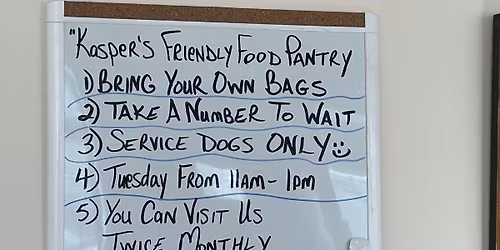 "Kasper's Friendly Food Pantry
1) Bring Your Own Bags
2) Take A Number To Wait
3) Service Dogs Only☺
4) Tuesday From 11am - 1pm
5) You Can Visit Us
Twice Monthly